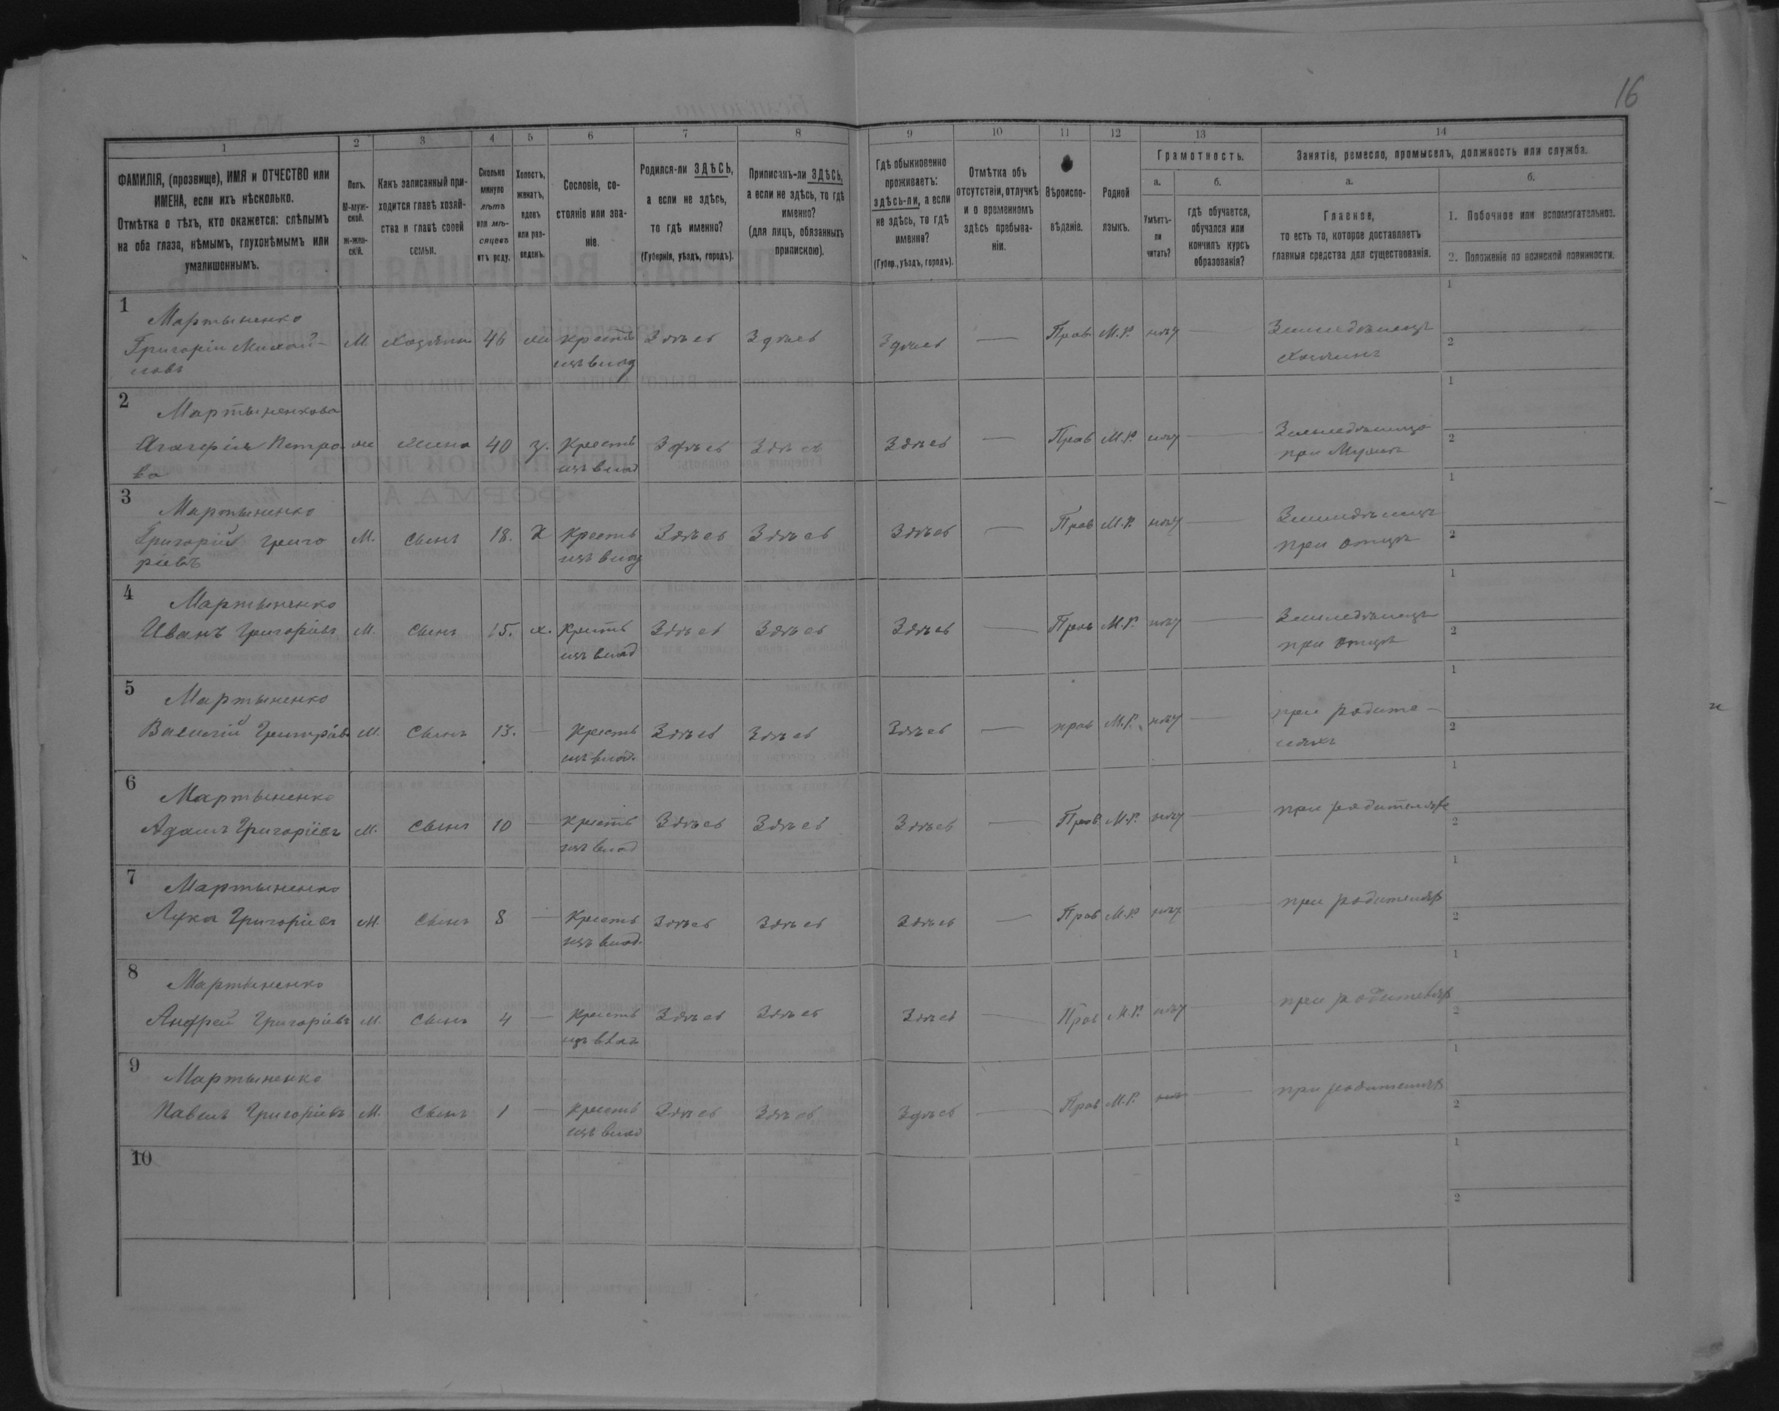 16
1
2
3
4
5
6
7
8
9
10
11
12
13
14
ФАМИЛІЯ, (прозвище), ИМЯ и ОТЧЕСТВО или
ИМЕНА, если ихъ нѣсколько.
Отмѣтка о тѣхъ, кто окажется: слѣпымъ
на оба глаза, нѣмымъ, глухонѣмымъ или
умалишоннымъ.
Полъ.
М-муж-
ской.
ж-жен-
скій.
Какъ записанный при-
ходится главѣ хозяй-
ства и главѣ своей
семьи.
Сколько
минуло
лѣтъ
или мѣ-
сяцевъ
отъ роду.
Холостъ,
женатъ,
вдовъ
или раз-
веденъ.
Сословіе, со-
стояніе или зва-
ніе.
Родился-ли ЗДѢСЬ,
а если не здѣсь,
то гдѣ именно?
(Губернія, уѣздъ, городъ).
Приписанъ-ли ЗДѢСЬ,
а если не здѣсь, то гдѣ
именно?
(для лицъ, обязанныхъ
припискою).
Гдѣ обыкновенно
проживаетъ:
здѣсь-ли, а если
не здѣсь, то гдѣ
именно?
(Губер., уѣздъ, городъ).
Отмѣтка объ
отсутствіи, отлучкѣ
и о временномъ
здѣсь пребыва-
ніи.
Вѣроиспо-
вѣданіе.
Родной
языкъ.
Грамотность.
а.
б.
Умѣетъ-
ли
читать?
гдѣ обучается,
обучался или
кончилъ курсъ
образованія?
Занятіе, ремесло, промыселъ, должность или служба.
а.
б.
Главное,
то есть то, которое доставляетъ
главныя средства для существованія.
1. Побочное или вспомогательное.
2. Положеніе по воинской повинности.
1
Мартыненко
Григорій Михай-
ловъ
М. Хозяинъ 46 Ж Крестъ Здѣсь Здѣсь Здѣсь — Прав М.Р. нѣт — Земледѣлецъ
изъ влад
Хозяинъ
1
2
2
Мартыненкова
Петро
ва
ж Жена 40 З. Крестъ Здѣсь Здѣсь Здѣсь — Прав М.Р. нѣт — Земледѣлица
изъ влад
при Мужѣ
1
2
3
Мартыненко
Григорій Григо
ріевъ
М. Сынъ 18. Х Крестъ Здѣсь Здѣсь Здѣсь — Прав М.Р. нѣт — Земледѣлецъ
изъ влад
при отцѣ
1
2
4
Мартыненко
Иванъ Григоріевъ М. Сынъ 15. х. Крестъ Здѣсь Здѣсь Здѣсь — Прав М.Р. нѣт — Земледѣлецъ
изъ влад
при отцѣ
1
2
5
Мартыненко
Василій Григоріевъ М. Сынъ 13. — Крестъ Здѣсь Здѣсь Здѣсь — прав М.Р. нѣт — при родите-
изъ влад.
ляхъ
1
2
6
Мартыненко
Адамъ Григоріевъ М. Сынъ 10 — Крестъ Здѣсь Здѣсь Здѣсь — Прав М.Р. нѣт — при родителяхъ
изъ влад
1
2
7
Мартыненко
Лука Григоріевъ М. Сынъ 8 — Крестъ Здѣсь Здѣсь Здѣсь — Прав М.Р. нѣт — при родителяхъ
изъ влад.
1
2
8
Мартыненко
Андрей Григоріевъ М. Сынъ 4 — Крестъ Здѣсь Здѣсь Здѣсь — Прав М.Р. нѣт — при родителяхъ
изъ влад
1
2
9
Мартыненко
Павелъ Григоріевъ М. Сынъ 1 — Крестъ Здѣсь Здѣсь Здѣсь — Прав М.Р. нѣт — при родителяхъ
изъ влад
1
2
10
1
2